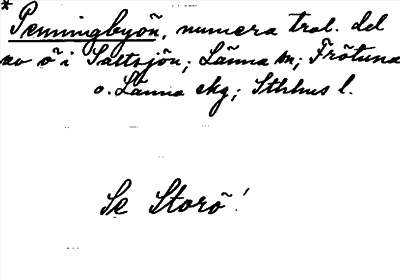 * Penningbyön, numera trol. del
av ö i Saltsjön; Länna sn; Frötuna
o. Länna skg; Sthlms l.
Se Storö!